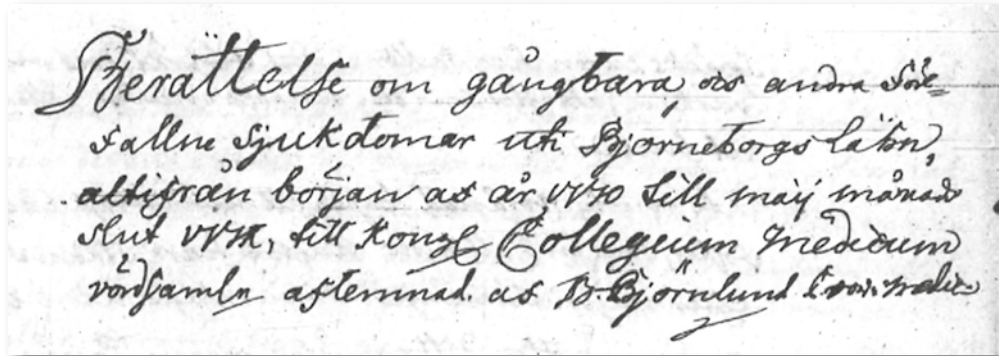 Berättelse om gångbara och andra före-
fallne sjukdomar uti Björneborgs lähn,
altifrån början af år 1770 till maij månads
slut 1771, till Kongl Collegium Medicum
vördsamln aflemnad af B. Björnlund